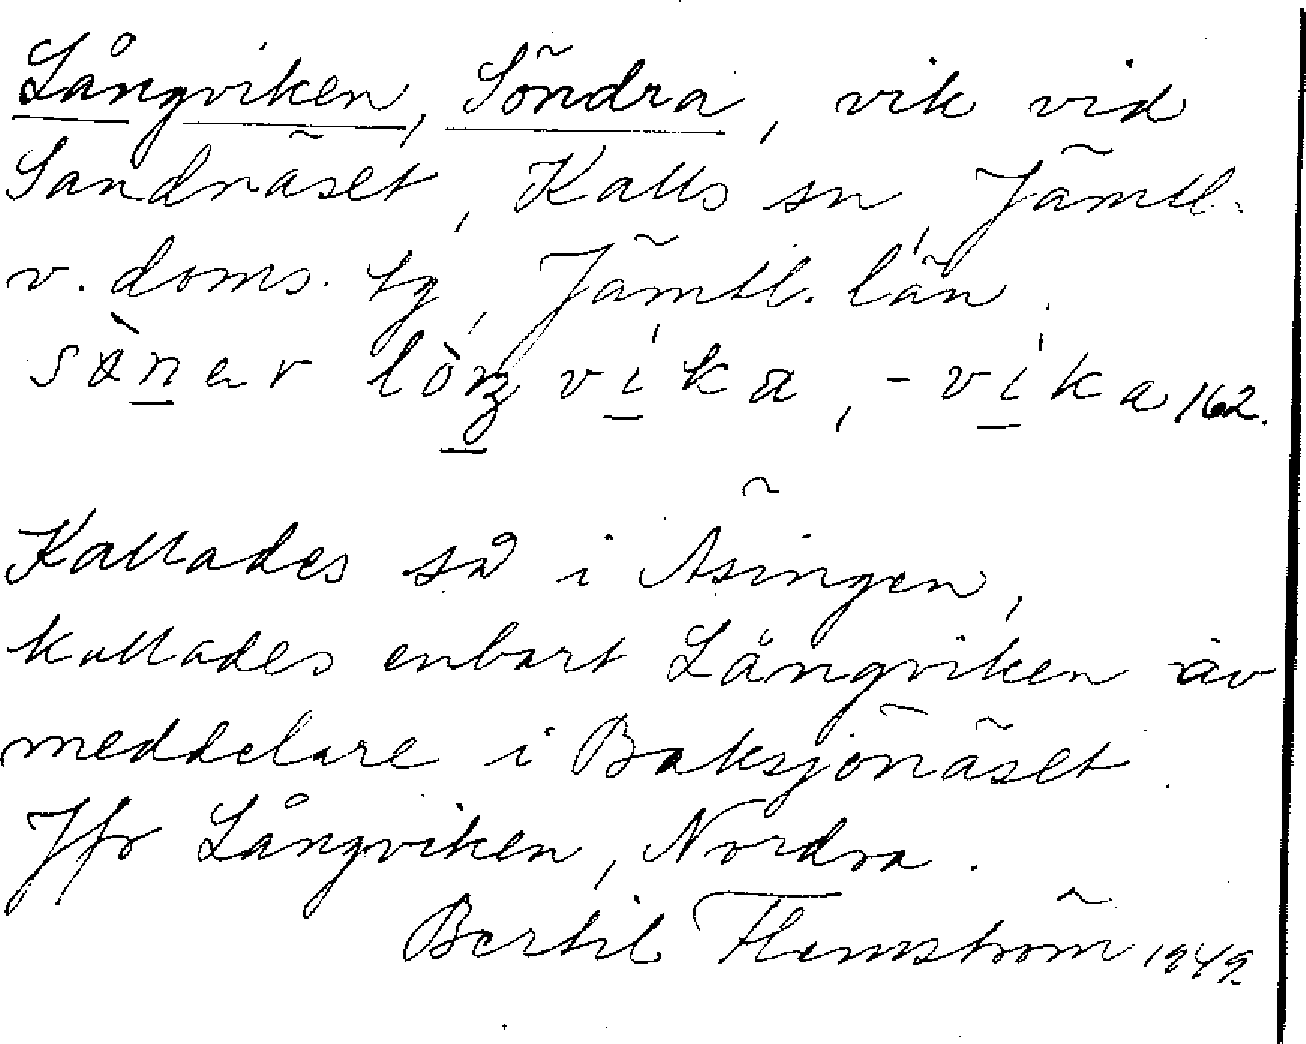 Långviken, Söndra, vik vid
Sandnäset, Kalls sn, Jämtl.
v. doms. tg, Jämtl. län.
162.
Kallades så i Äsingen,
kallades enbart Långviken av
meddelare i Baksjönäset.
Jfr Långviken, Nordra.
Bertil Flemström 1949.